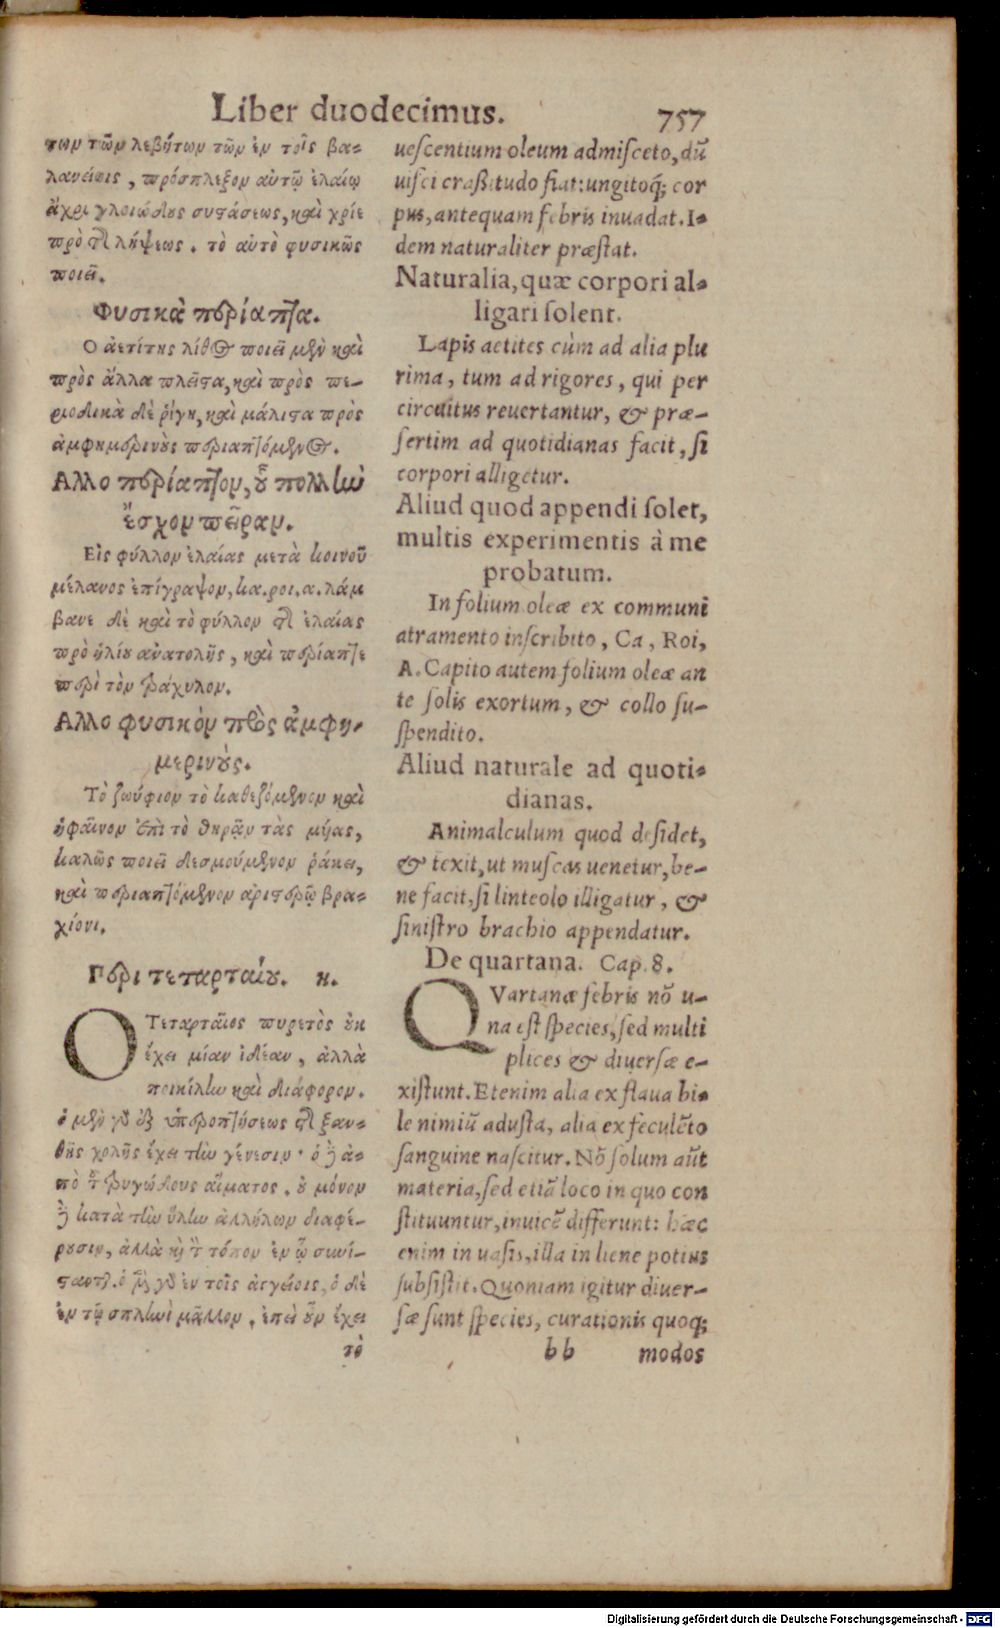 Liber duodecimus. 757
των τῶν λεβήτων τῶν ἐν τοῖς βα-
λανείοις, πρόσπλεξον αὐτῷ ἐλαίῳ
ἄχρι γλοιώδους συστάσεως, καὶ χρῖε
πρὸ τῆς λήψεως. τὸ αὐτὸ φυσικῶς
ποιεῖ.
Φυσικὰ περίαπτα.
Ο ἀετίτης λίθος ποιεῖ μὲν καὶ
πρὸς ἄλλα πλεῖστα, καὶ πρὸς πε-
ριοδικὰ δὲ ῥίγη, καὶ μάλιστα πρὸς
ἀμφημερινοὺς περιαπτόμενος.
Αλλο περίαπτον, οὗ πολλὴν
ἔσχον πεῖραν.
Εἰς φύλλον ἐλαίας μετὰ κοινοῦ
μέλανος ἐπίγραψον, κα. ροι. α. λάμ
βανε δὲ καὶ τὸ φύλλον τῆς ἐλαίας
πρὸ ἡλίου ἀνατολῆς, καὶ περίαπτε
περὶ τὸν τράχηλον.
Αλλο φυσικὸν πρὸς ἀμφη-
μερινούς.
Τὸ ζωύφιον τὸ καθεζόμενον καὶ
ὑφαῖνον ἐπὶ τὸ θηρᾷν τὰς μύας,
καλῶς ποιεῖ δεσμούμενον ῥάκει,
καὶ περιαπτόμενον ἀριστερῷ βρα-
χίονι.
Περι τεταρταίου. η.
Ο Τεταρταῖος πυρετὸς οὐκ
ἔχει μίαν ἰδέαν, ἀλλὰ
ποικίλην καὶ διάφορον.
ὁ μὲν γὰρ ἐξ ὑπεροπτήσεως τῆς ξαν-
θῆς χολῆς ἔχει τὴν γένεσιν· ὁ δὲ ἀ-
πὸ τοῦ τρυγώδους αἵματος. οὐ μόνον
δὲ κατὰ τὴν ὕλην ἀλλήλων διαφέ-
ρουσιν, ἀλλὰ καὶ τὸν τόπον ἐν ᾧ συνί-
στανται. ὁ μὲν γὰρ ἐν τοῖς ἀγγείοις, ὁ δὲ
ἐν τῷ σπληνὶ μᾶλλον. ἐπεὶ οὖν ἔχει
τὸ
uescentium oleum admisceto, dū
uisci craßitudo fiat: ungitoq́; cor
pus, antequam febris inuadat. I-
dem naturaliter præstat.
Naturalia, quæ corpori al-
ligari solent.
Lapis aetites cùm ad alia plu
rima, tum ad rigores, qui per
circuitus reuertantur, & præ-
sertim ad quotidianas facit, si
corpori alligetur.
Aliud quod appendi solet,
multis experimentis à me
probatum.
In folium oleæ ex communi
atramento inscribito, Ca, Roi,
A. Capito autem folium oleæ an
te solis exortum, & collo su-
spendito.
Aliud naturale ad quoti-
dianas.
Animalculum quod desidet,
& texit, ut muscas uenetur, be-
ne facit, si linteolo illigatur, &
sinistro brachio appendatur.
De quartana. Cap. 8.
QVartanæ febris nō u-
na est species, sed multi
plices & diuersæ e-
xistunt. Etenim alia ex flaua bi-
le nimiū adusta, alia ex feculēto
sanguine nascitur. Nō solum aūt
materia, sed etiā loco in quo con
stituuntur, inuicē differunt: hæc
enim in uasis, illa in liene potius
subsistit. Quoniam igitur diuer-
sæ sunt species, curationis quoq;
bb modos
Digitalisierung gefördert durch die Deutsche Forschungsgemeinschaft - DFG